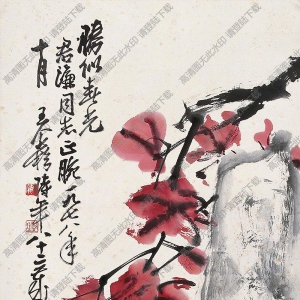 胜似春光
君濂同志正腕 一九七八年
十月 王个簃 时年八十二岁
高清图无此水印 请登陆下载